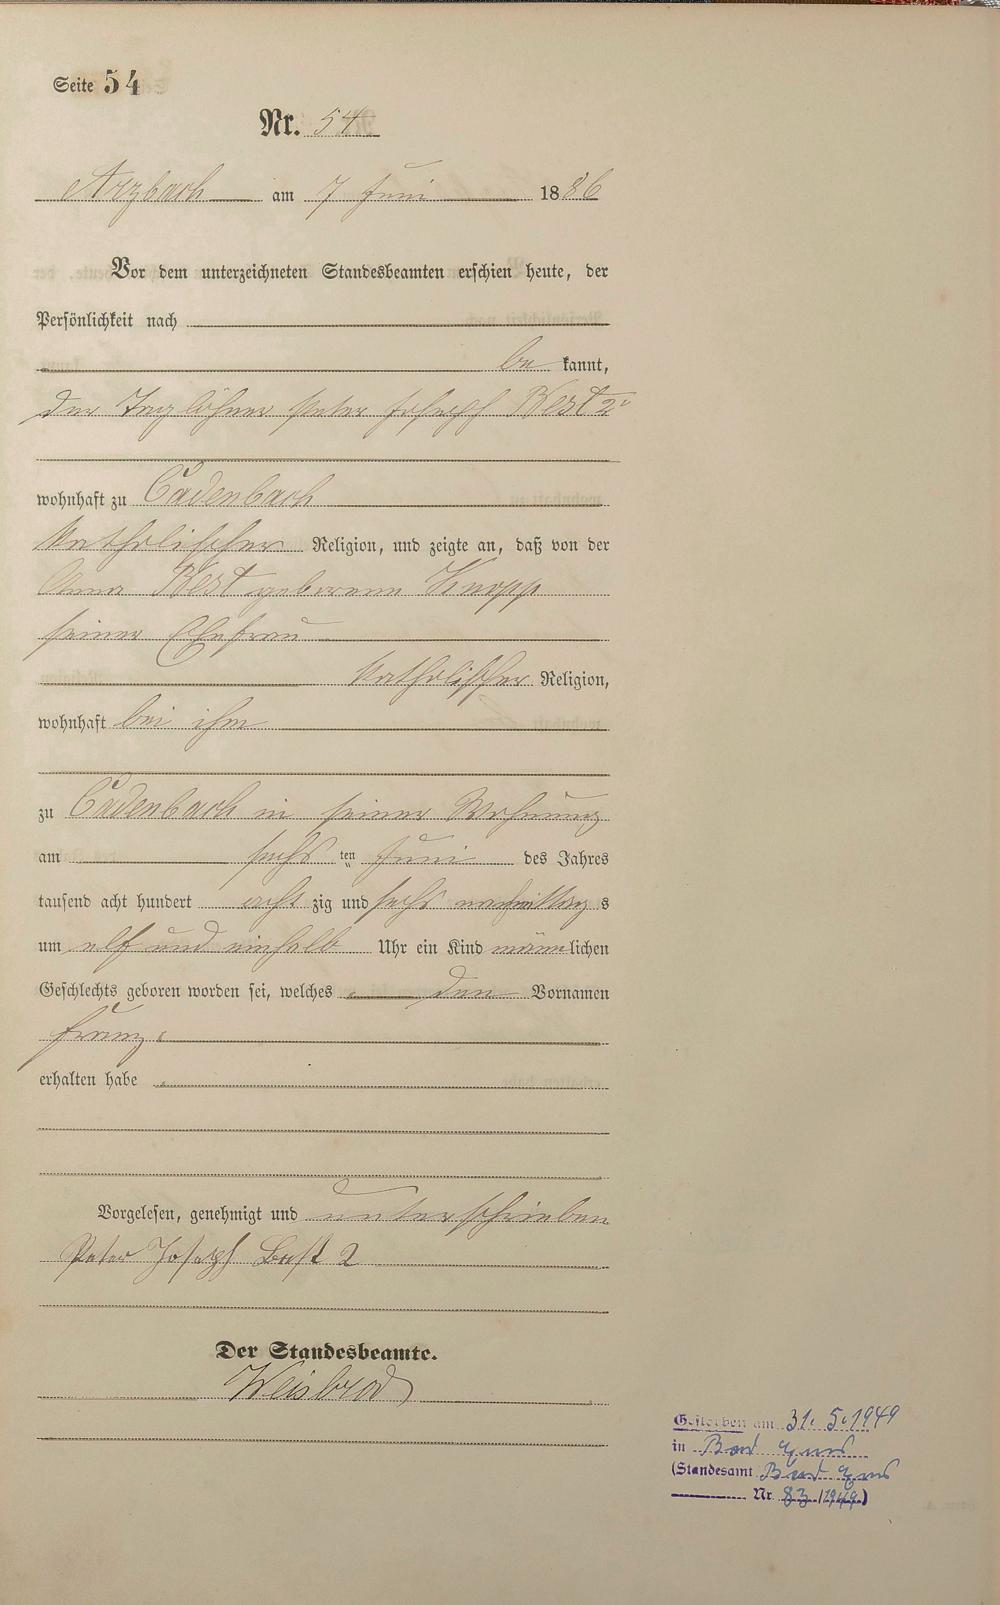 Seite 54
Nr. 54
Arzbach am 7 Juni 1886
Vor dem unterzeichneten Standesbeamten erschien heute, der
Persönlichkeit nach
be kannt,
der Taglöhner Peter Joseph Best 2r
wohnhaft zu Cadenbach
katholischer Religion, und zeigte an, daß von der
Anna Best geborene Knopp
seiner Ehefrau
katholischer Religion,
wohnhaft bei ihm
zu Cadenbach in seiner Wohnung
am sechs ten Juni des Jahres
tausend acht hundert acht zig und sechs nachmittag s
um elf und einhalb Uhr ein Kind männlichen
Geschlechts geboren worden sei, welches den Vornamen
Franz
erhalten habe
Vorgelesen, genehmigt und unterschrieben
Peter Joseph Best 2
Der Standesbeamte.
Weisbrod
Gestorben am 31. 5. 1949
in Bad Ems
(Standesamt Bad Ems
Nr. 83 /1949)